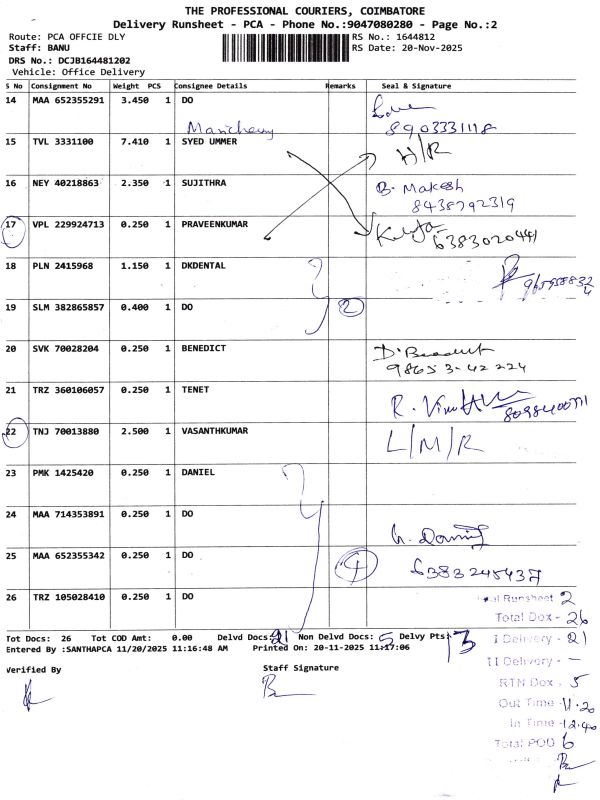 THE PROFESSIONAL COURIERS, COIMBATORE
Delivery Runsheet - PCA - Phone No.:9047080280 - Page No.:2
Route: PCA OFFCIE DLY
RS No.: 1644812
Staff: BANU
RS Date: 20-Nov-2025
DRS No.: DCJB164481202
Vehicle: Office Delivery
S No Consignment No Weight PCS Consignee Details Remarks Seal & Signature
14 MAA 652355291 3.450 1 DO
8903331118
15 TVL 3331100 7.410 1 SYED UMMER H/R
16 NEY 40218863 2.350 1 SUJITHRA B. Makesh
8438792319
17 VPL 229924713 0.250 1 PRAVEENKUMAR
6383020441
18 PLN 2415968 1.150 1 DKDENTAL
19 SLM 382865857 0.400 1 DO 2
20 SVK 70028204 0.250 1 BENEDICT D'Benedict
98653-42224
21 TRZ 360106057 0.250 1 TENET
22 TNJ 70013880 2.500 1 VASANTHKUMAR L/M/R
23 PMK 1425420 0.250 1 DANIEL
24 MAA 714353891 0.250 1 DO
25 MAA 652355342 0.250 1 DO 4
26 TRZ 105028410 0.250 1 DO
Runsheet 2
Total Dox - 26
Tot Docs: 26 Tot COD Amt: 0.00 Delvd Docs: 21 Non Delvd Docs: 5 Delvy Pts: 13
I Delivery - 21
Entered By :SANTHAPCA 11/20/2025 11:16:48 AM Printed On: 20-11-2025 11:17:06
II Delivery - —
Verified By
Staff Signature
RTN Dox - 5
Out Time - 11.20
In Time - 12.40
Total POD 6